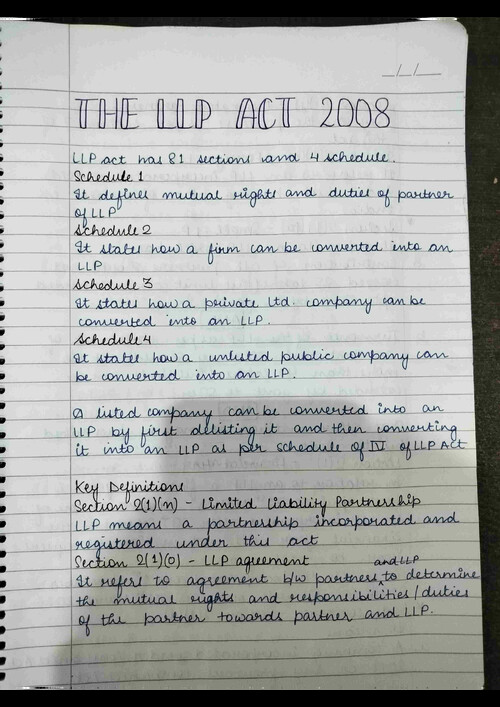 _/_/_
THE LLP ACT 2008
LLP act has 81 sections and 4 schedule.
Schedule 1
It defines mutual rights and duties of partner
of LLP
Schedule 2
It states how a firm can be converted into an
LLP
Schedule 3
It states how a private Ltd. company can be
converted into an LLP.
Schedule 4
It states how a unlisted public company can
be converted into an LLP.
A listed company can be converted into an
LLP by first delisting it and then converting
it into an LLP as per schedule of IV of LLP Act
Key Definitions
Section 2(1)(n) - Limited Liability Partnership
LLP means a partnership incorporated and
registered under this act
Section 2(1)(o) - LLP agreement
It refers to agreement b/w partners and LLP to determine
the mutual rights and responsibilities/duties
of the partner towards partner and LLP.